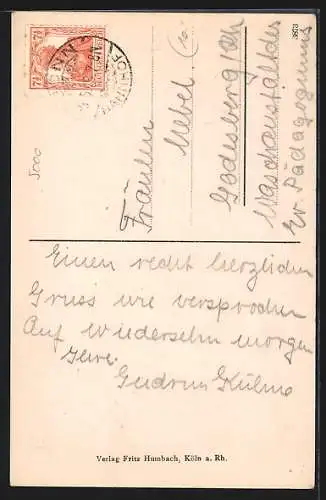 7½
5000
Fräulein
Nebel
Godesberg/Rh
Waschanstalt des
Ev. Pädagogiums
3673
Einen recht herzlichen
Gruss wie versprochen
Auf Wiedersehn morgen
Gudrun Kühne
Verlag Fritz Humbach, Köln a. Rh.